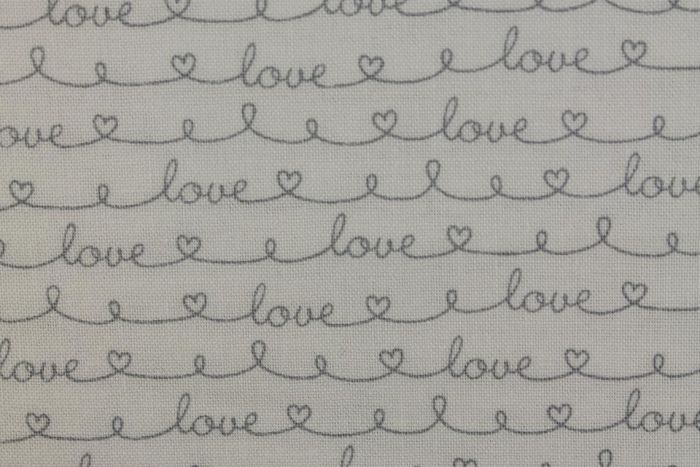 love love
love love
ove love
love love
love love
love love
love love
love love